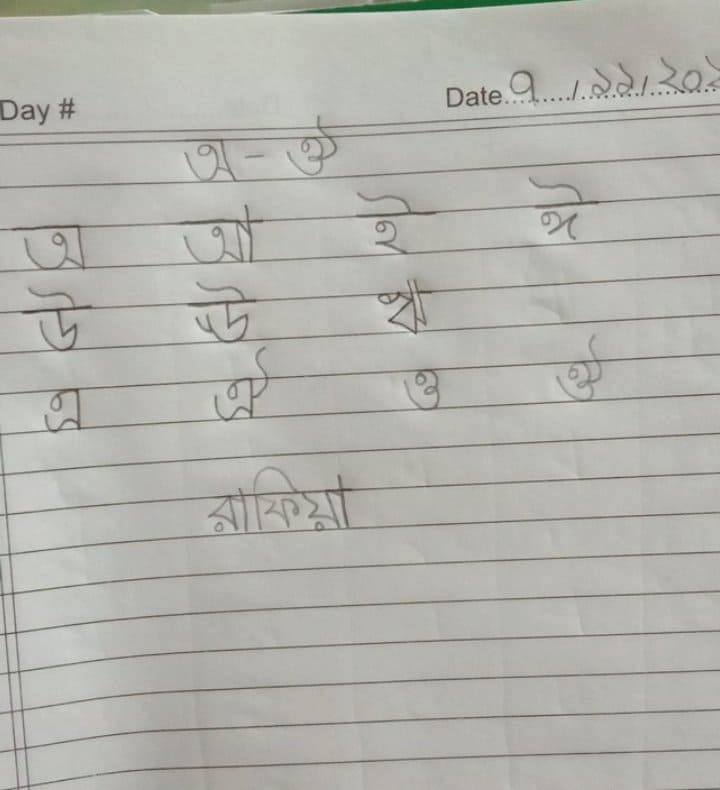 Day #
Date ৭/১১/২০২
অ - ঔ
অ আ ই ঈ
উ ঊ ঋ
এ ঐ ও ঔ
রাফিয়া